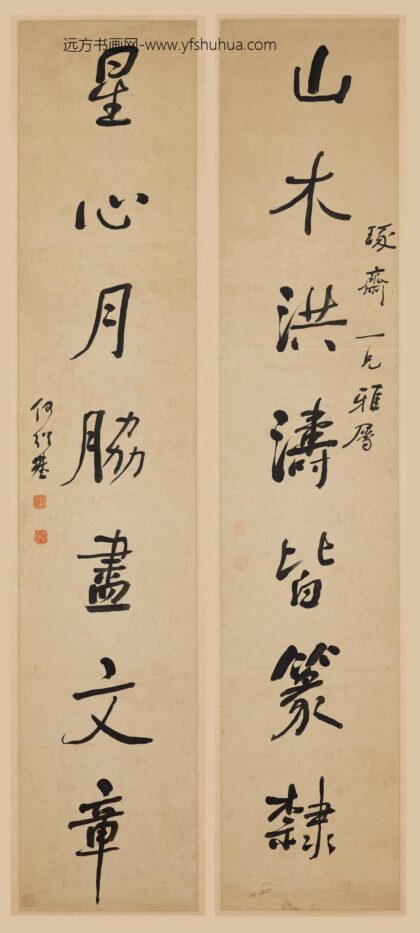 远方书画网-www.yfshuhua.com
琢齋一兄雅屬
山木洪濤皆篆隸
星心月脇盡文章
何紹基